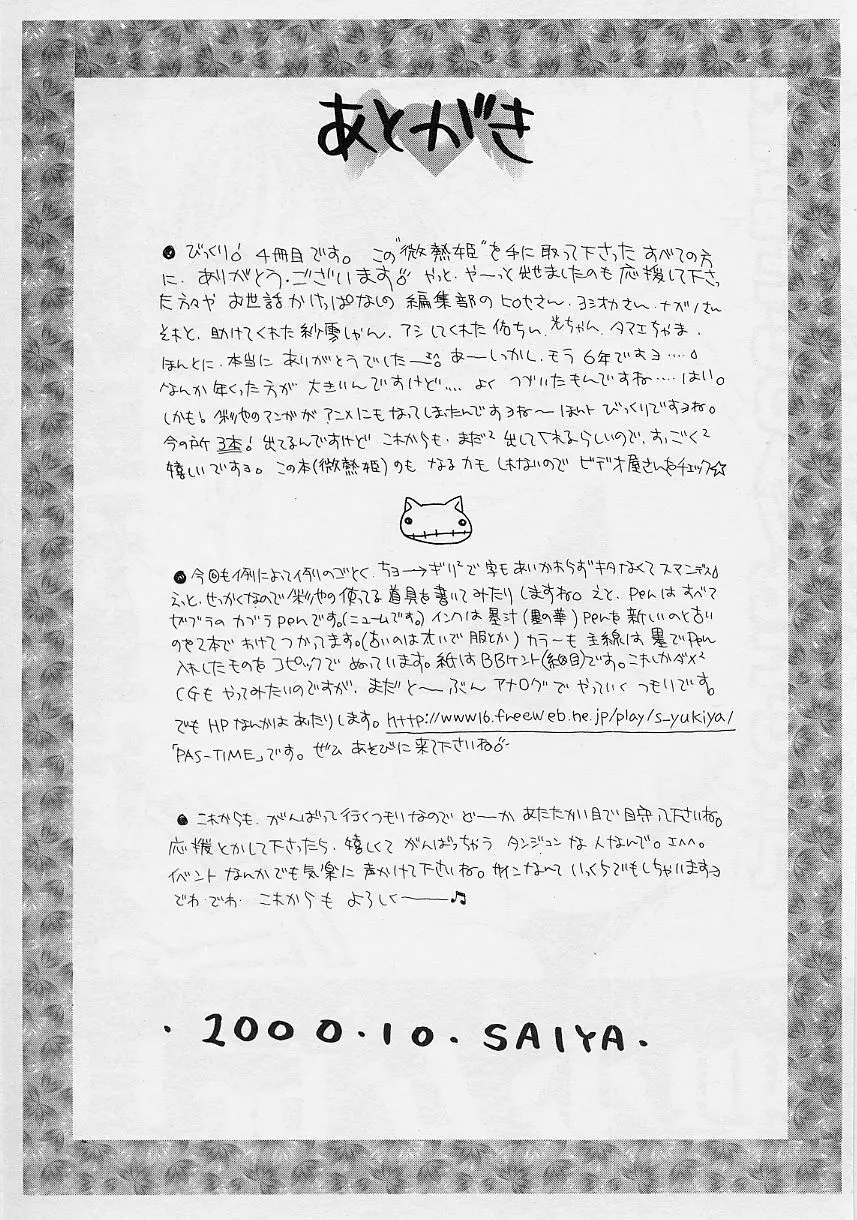 あとがき
● びっくり♪ 4冊目です。この"微熱姫"を手に取って下さったすべての方
に、ありがとう・ございます♪ やっと、や〜っと出せましたのも応援して下さっ
た方々や お世話かけっぱなしの 編集部のヒロセさん、ヨシオカさん、ナガノさん
それと、助けてくれた紗雪しゃん、アシしてくれた佑ちん、光ちゃん、タマエちゃま、
ほんとに、本当に ありがとうでした── あ─しかし、もう6年ですヨ・・・・。
なんか 年くった方が 大きいんですけど・・・・ よく つづいたもんですね・・・・はい。
しかも! 彩也のマンガが アニメにもなってしまったんですヨね〜 ほんと びっくりですヨね。
今の所 3本! 出てるんですけど これからも、まだ²出してくれるらしいので、すっごく²
嬉しいですヨ。この本(微熱姫)のも なるかも しれないので ビデオ屋さんをチェック☆
● 今回も例によって例のごとく、ちョ─→ギリ²で 字も あいかわらずキタなくてスマンデス♪
えっと、せっかくなので 彩也の使ってる道具を書いてみたりしますね。えと、Penは すべて
ゼブラの カブラpenです。(ニュームです。) インクは 墨汁(墨の華) Penを 新しいのと古い
のやで2本で わけてつかってます。(古いのは オイで 服とか) カラーも 主線は 墨でPen
入れしたものを コピックで ぬっています。紙はBBケント(細目)です。これしかダメ²
CGも やってみたいのですが、まだ と〜 ぶん アナログで やっていく つもりです。
でも HPなんかは あったりします。http://www16.freeweb.ne.jp/play/s_yukiya/
「PAS-TIME」です。ぜひ あそびに来て下さいね♪
● これからも、がんばって行くつもりなので ど─か あたたかい目で 見守って下さいね。
応援とかして下さったら、嬉しくて がんばっちゃう タンジュン な 人なんで。エヘヘ。
イベント なんかでも気楽に 声かけて下さいね。サインなんて いっくらでもしちゃいますヨ
でわ・でわ これからも よろしく───♫
・2000.10. SAIYA.